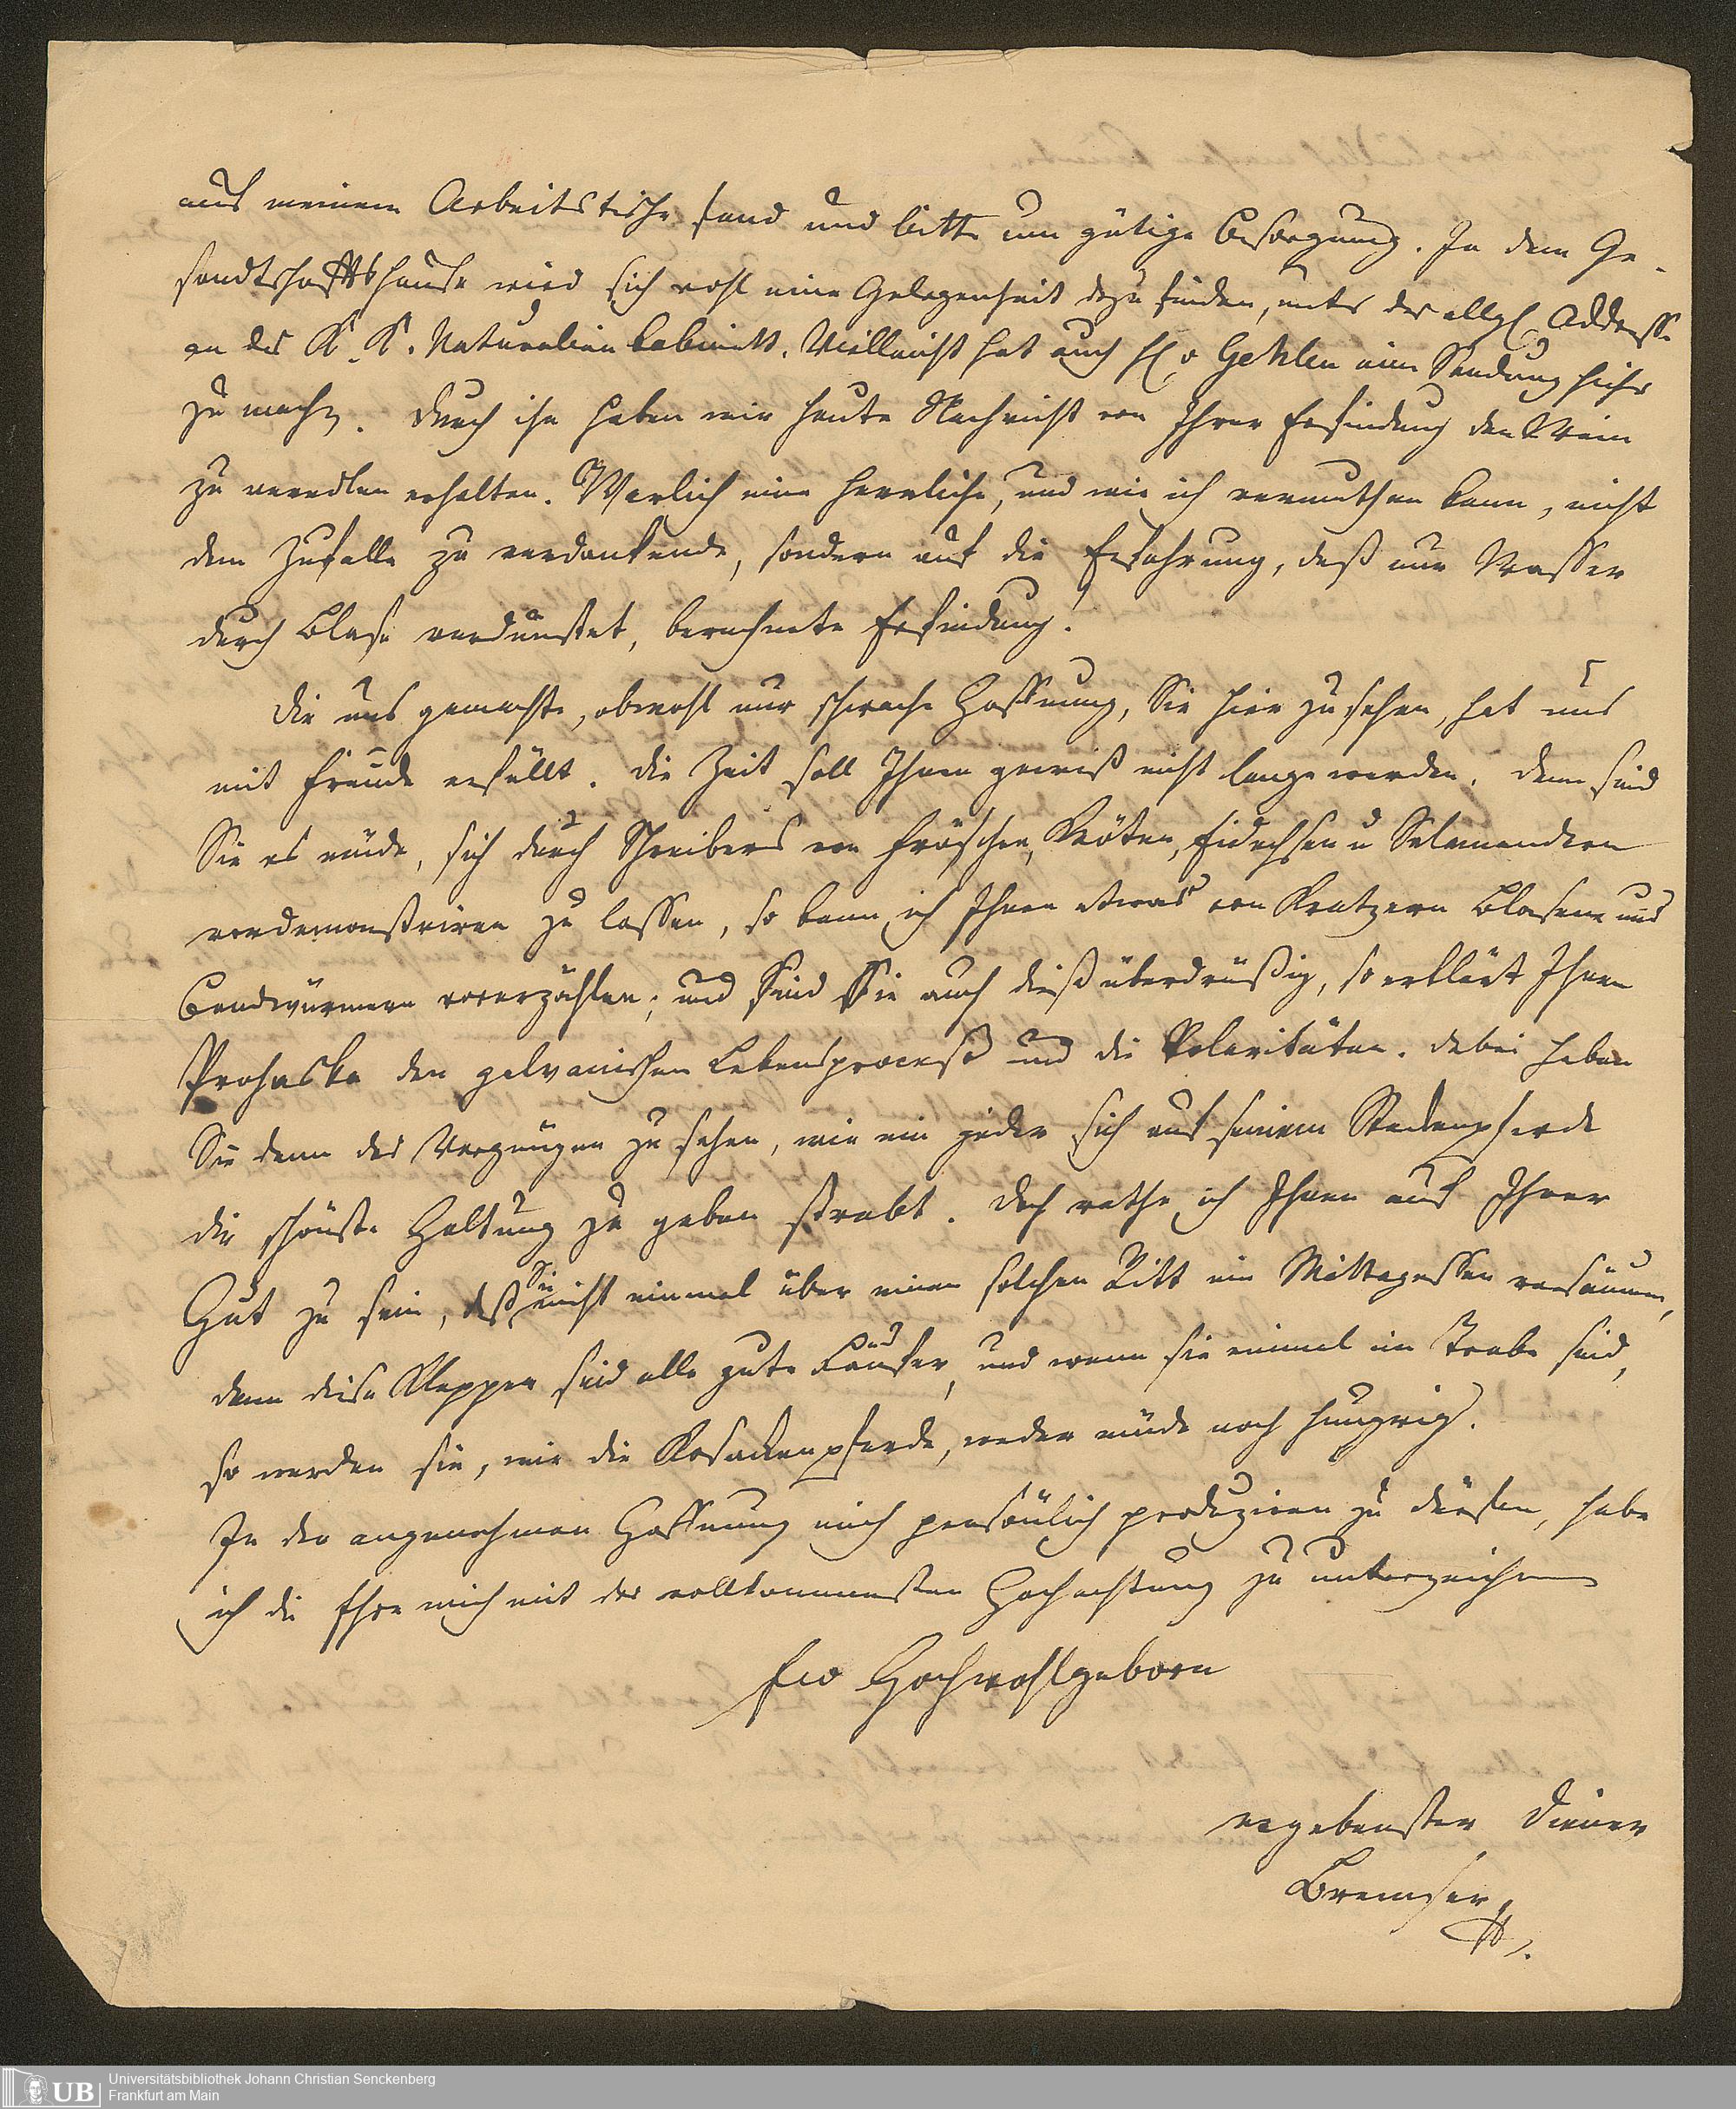 auf meinem Arbeitstische fand und bitte um gütige Besorgung. In dem Ge-
sandtschaftshause wird sich wohl eine Gelegenheit dazu finden, unter der allgl. Addresse
an das K. K. Naturalien Cabinett. Vielleicht hat auch H v Gehlen eine Sendung hieher
zu machen. Durch ihn haben wir heute Nachricht von Ihrer Erfindung den Wein
zu veredlen erhalten. Warlich eine herrliche, und wie ich vermuthen kann, nicht
dem Zufalle zu verdankende, sondern auf die Erfahrung, daß nur Wasser
durch Blase verdunstet, berechnete Erfindung!
Die uns gemachte, obwohl nur schwache Hoffnung, Sie hier zu sehen, hat uns
mit Freude erfüllt. Die Zeit soll Ihnen gewiß nicht lange werden. Denn sind
Sie es müde, sich durch Schreibers von Fröschen, Kröten, Eidechsen u Salamandern
vordemonstriren zu lassen, so kann ich Ihnen etwas von Kratzern Blasen und
Bandwürmern vorerzählen; und sind Sie auch dieß überdrüßig, so erklärt Ihnen
Prohaska den galvanischen Lebensproceß und die Polaritäten. Dabei haben
Sie denn das Vergnügen zu sehen, wie ein jeder sich auf seinem Steckenpferde
die schönste Haltung zu geben strebt. Doch rathe ich Ihnen auf Ihrer
Hut zu sein, daß Sie nicht einmal über einen solchen Ritt ein Mittagessen versäumen,
denn diese Klepper sind alle gute Läufer, und wenn sie einmal im Trabe sind,
so werden sie, wie die Kosackenpferde, weder müde noch hungrig.
In der angenehmen Hoffnung mich persönlich produziren zu dürfen, habe
ich die Ehre mich mit der vollkommensten Hochachtung zu unterzeichnen
Ew Hochwohlgeborn
ergebenster Diener
Bremser
UB
Universitätsbibliothek Johann Christian Senckenberg
Frankfurt am Main